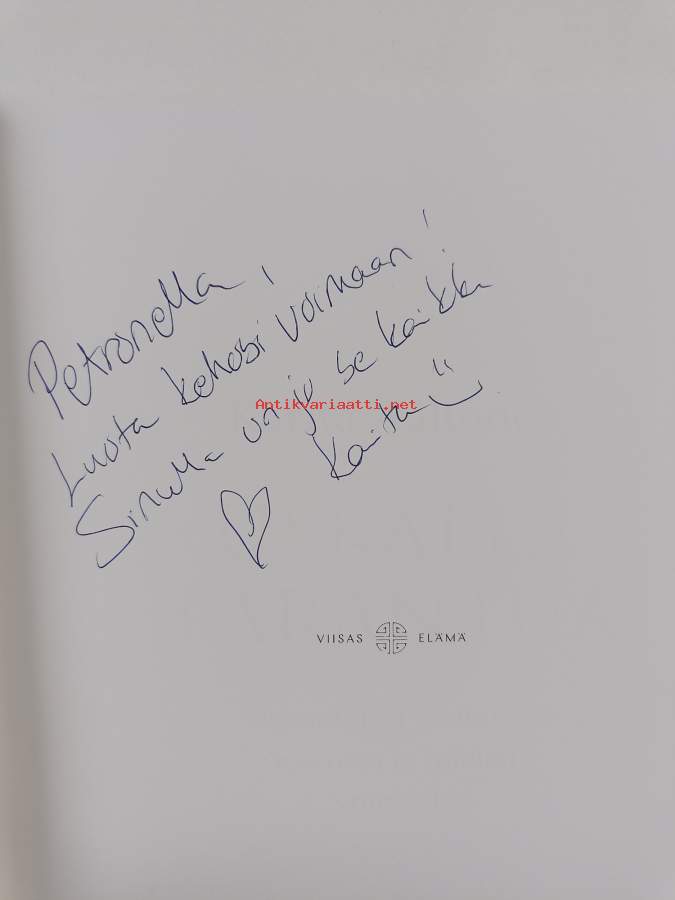 Petronella,
Luota kehosi voimaan!
Sinulla on jo se kaikki
Kaita
Antikvariaatti.net
VIISAS ELÄMÄ